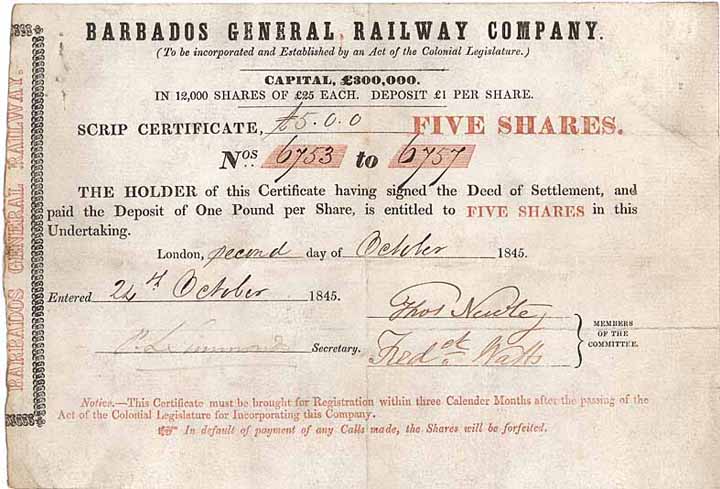 BARBADOS GENERAL RAILWAY COMPANY.
(To be incorporated and Established by an Act of the Colonial Legislature.)
CAPITAL, £300,000.
IN 12,000 SHARES OF £25 EACH. DEPOSIT £1 PER SHARE.
SCRIP CERTIFICATE, £5.0.0 FIVE SHARES.
Nos 6753 to 6757
THE HOLDER of this Certificate having signed the Deed of Settlement, and
paid the Deposit of One Pound per Share, is entitled to FIVE SHARES in this
Undertaking.
London, second day of October 1845.
Entered 24th October 1845.
Thos
MEMBERS
OF THE
COMMITTEE.
Secretary.
Fredck Watts
Notice.—This Certificate must be brought for Registration within three Calender Months after the passing of the
Act of the Colonial Legislature for Incorporating this Company.
☞ In default of payment of any Calls made, the Shares will be forfeited.
BARBADOS GENERAL RAILWAY.